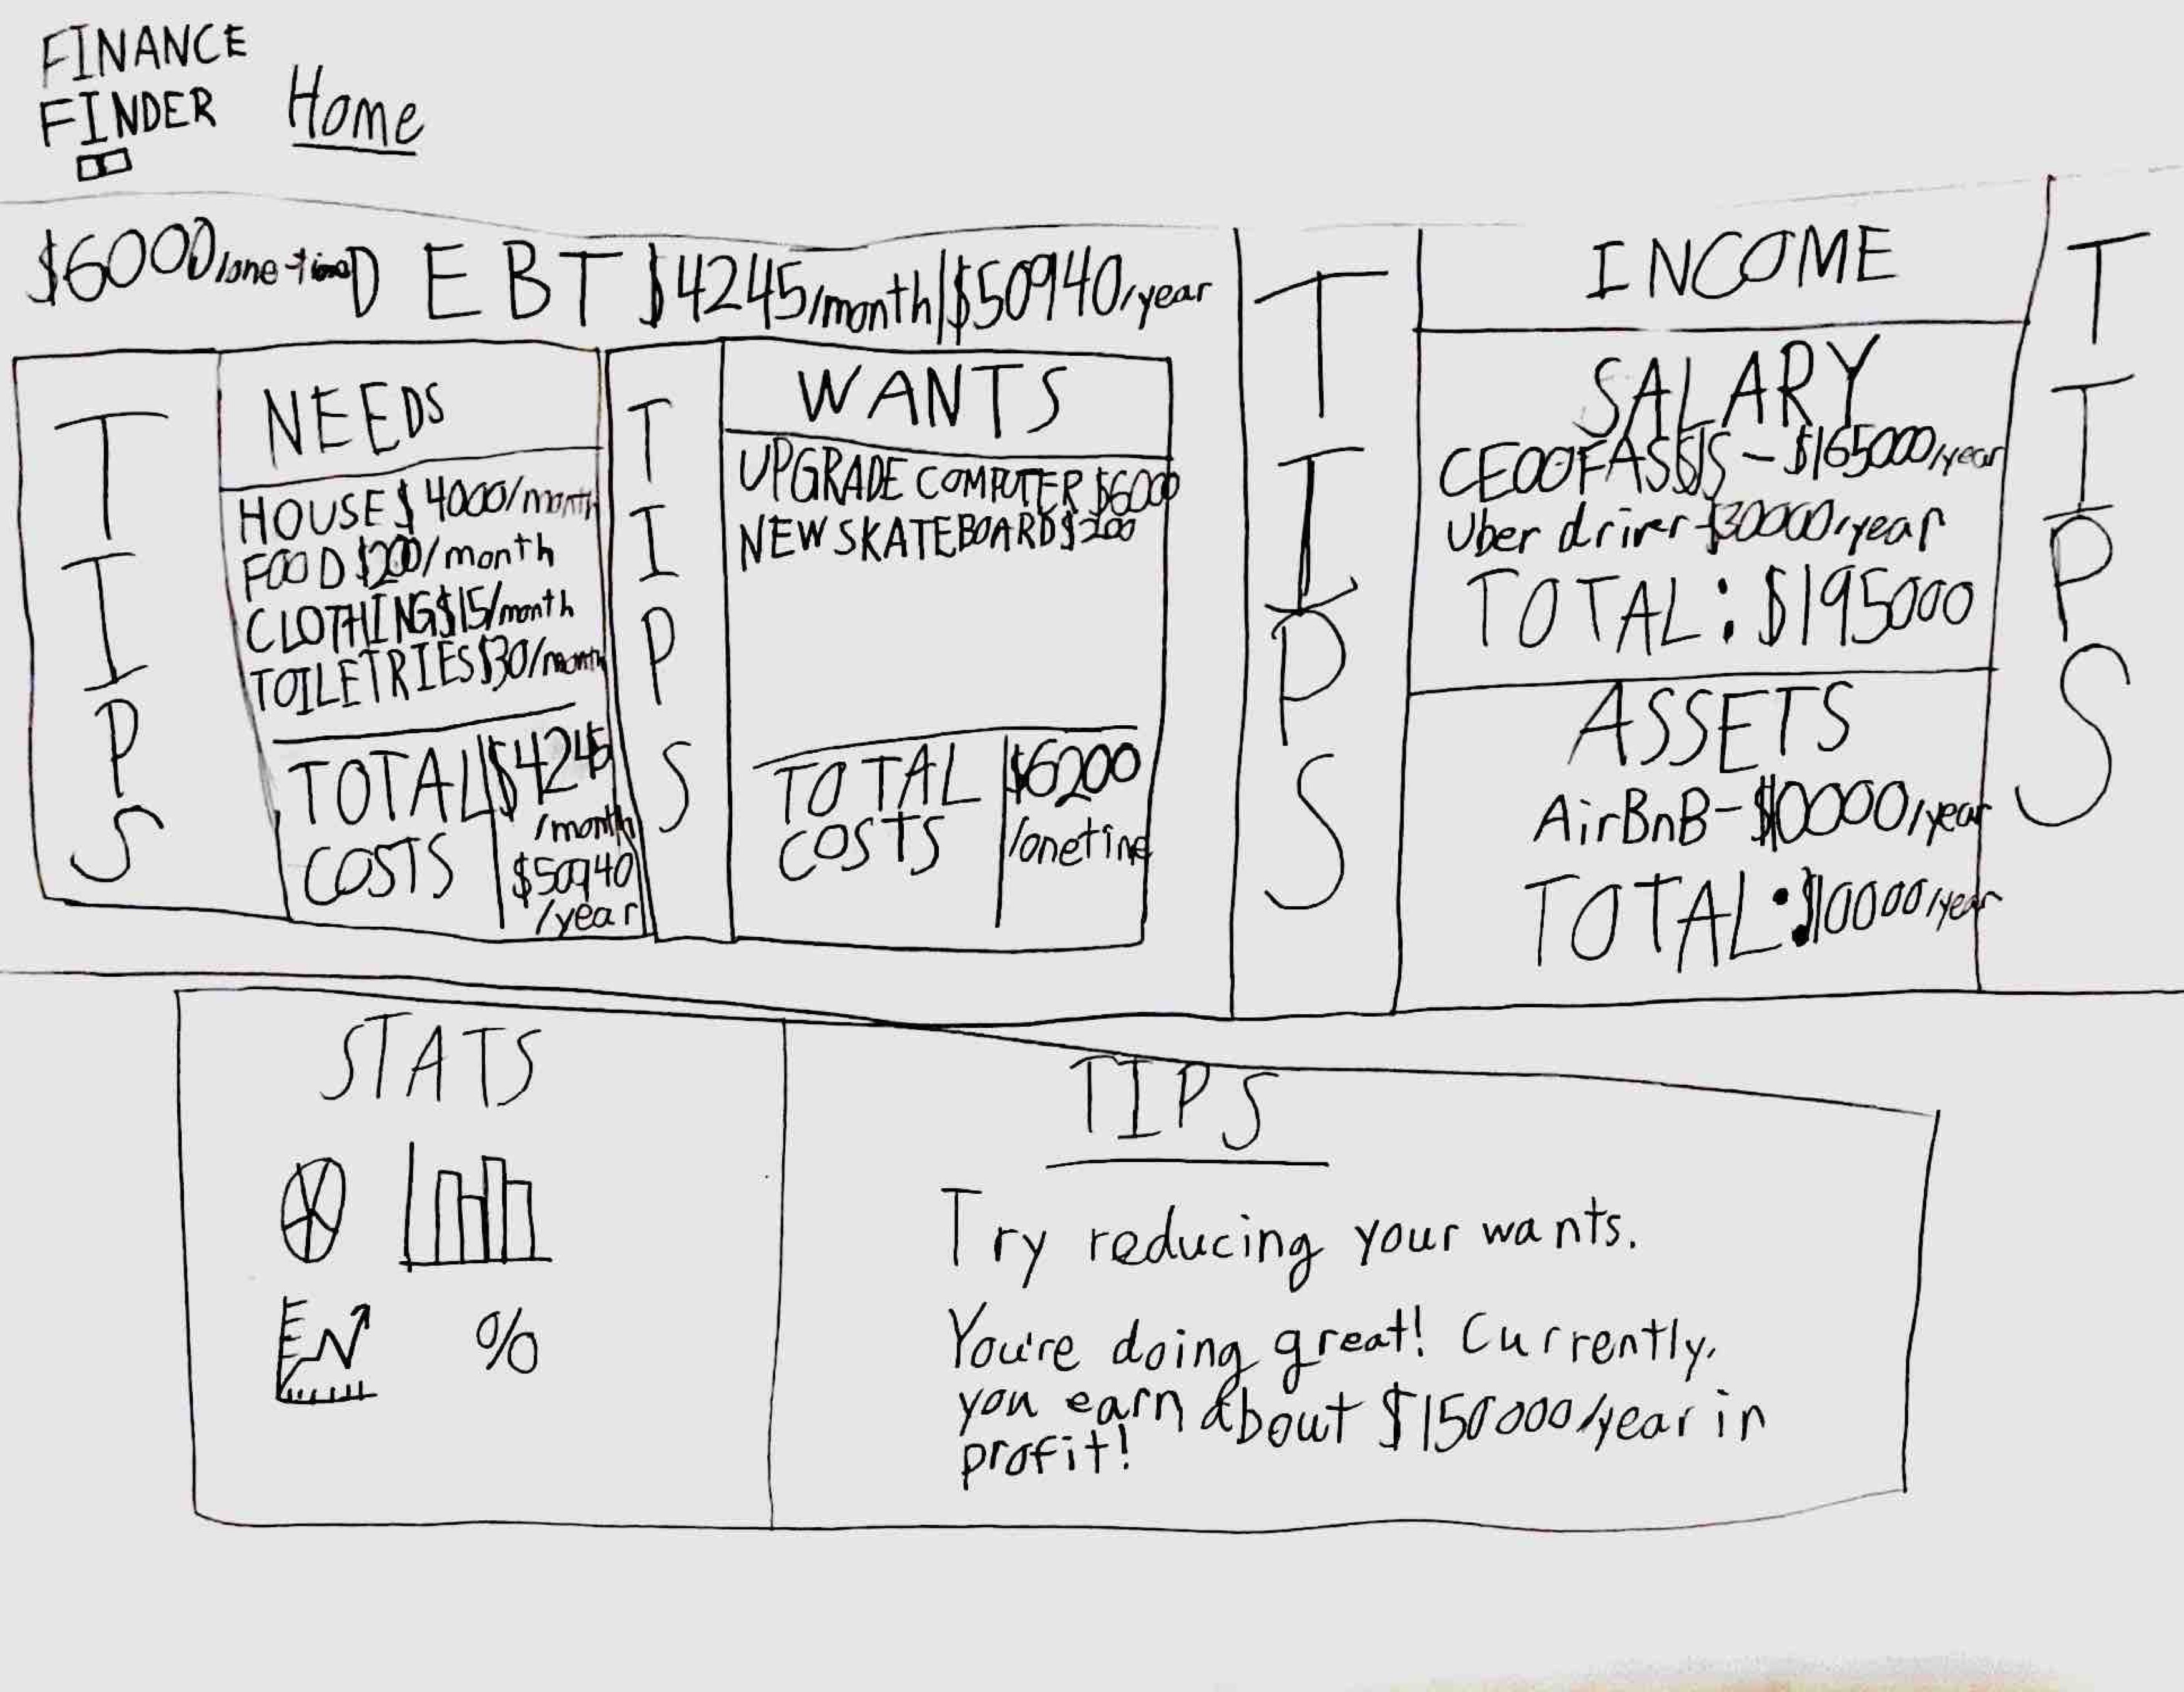 FINANCE
FINDER
Home
$6000/one-time DEBT $4245/month|$50940/year
TIPS
NEEDS
HOUSE $4000/month
FOOD $200/month
CLOTHING $15/month
TOILETRIES $30/month
TOTAL COSTS
$4245
/month
$50940
/year
TIPS
WANTS
UPGRADE COMPUTER $6000
NEW SKATEBOARD $200
TOTAL COSTS
$6200
/onetime
TIPS
INCOME
SALARY
CEO OF - $165000/year
Uber driver-$30000/year
TOTAL: $195000
ASSETS
AirBnB-$10000/year
TOTAL:$10000/year
TIPS
STATS
%
TIPS
Try reducing your wants.
You're doing great! Currently,
you earn about $150000/year in
profit!